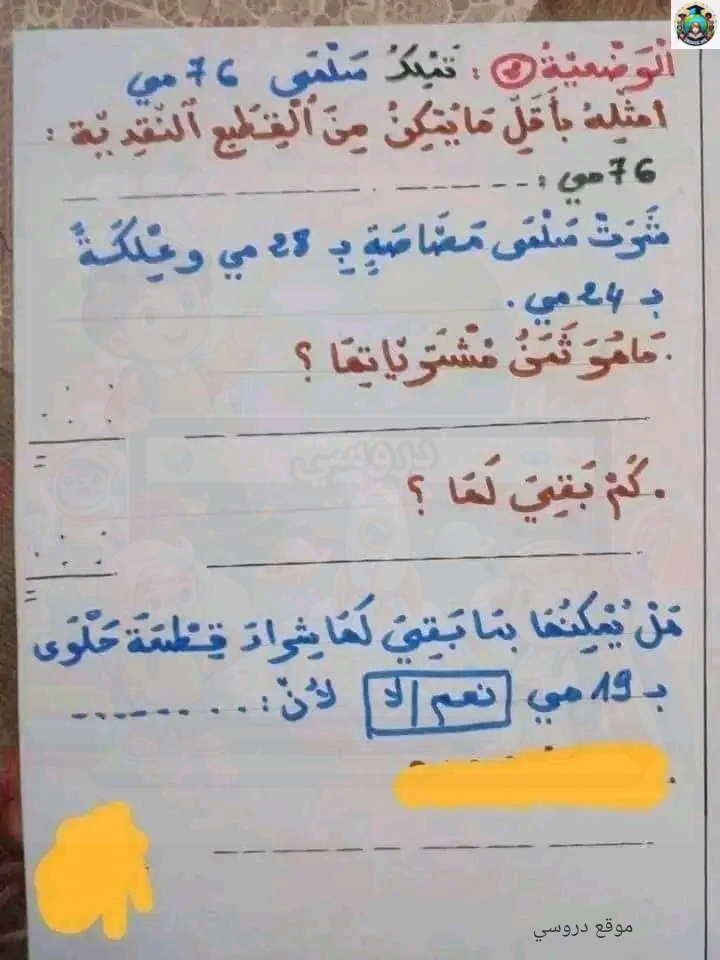 الْوَضْعِيَّةُ ② : تَمْلِكُ سَلْمَى 76 مي
أُمَثِّلُهُ بِأَقَلِّ مَا يُمْكِنُ مِنَ الْقِطَعِ النَّقْدِيَّةِ :
76 مي :
شَرَتْ سَلْمَى مَصَّاصَةٍ بِـ 28 مي وعِلْكَةً
بـ 24 مي .
. مَا هُوَ ثَمَنُ مُشْتَرَيَاتِهَا ؟
=
. كَمْ بَقِيَ لَهَا ؟
=
هَلْ يُمْكِنُهَا بِمَا بَقِيَ لَهَا شِرَاءَ قِطْعَةَ حَلْوَى
بـ 19 مي نعم | لا لأنّ :
دروسي
موقع دروسي